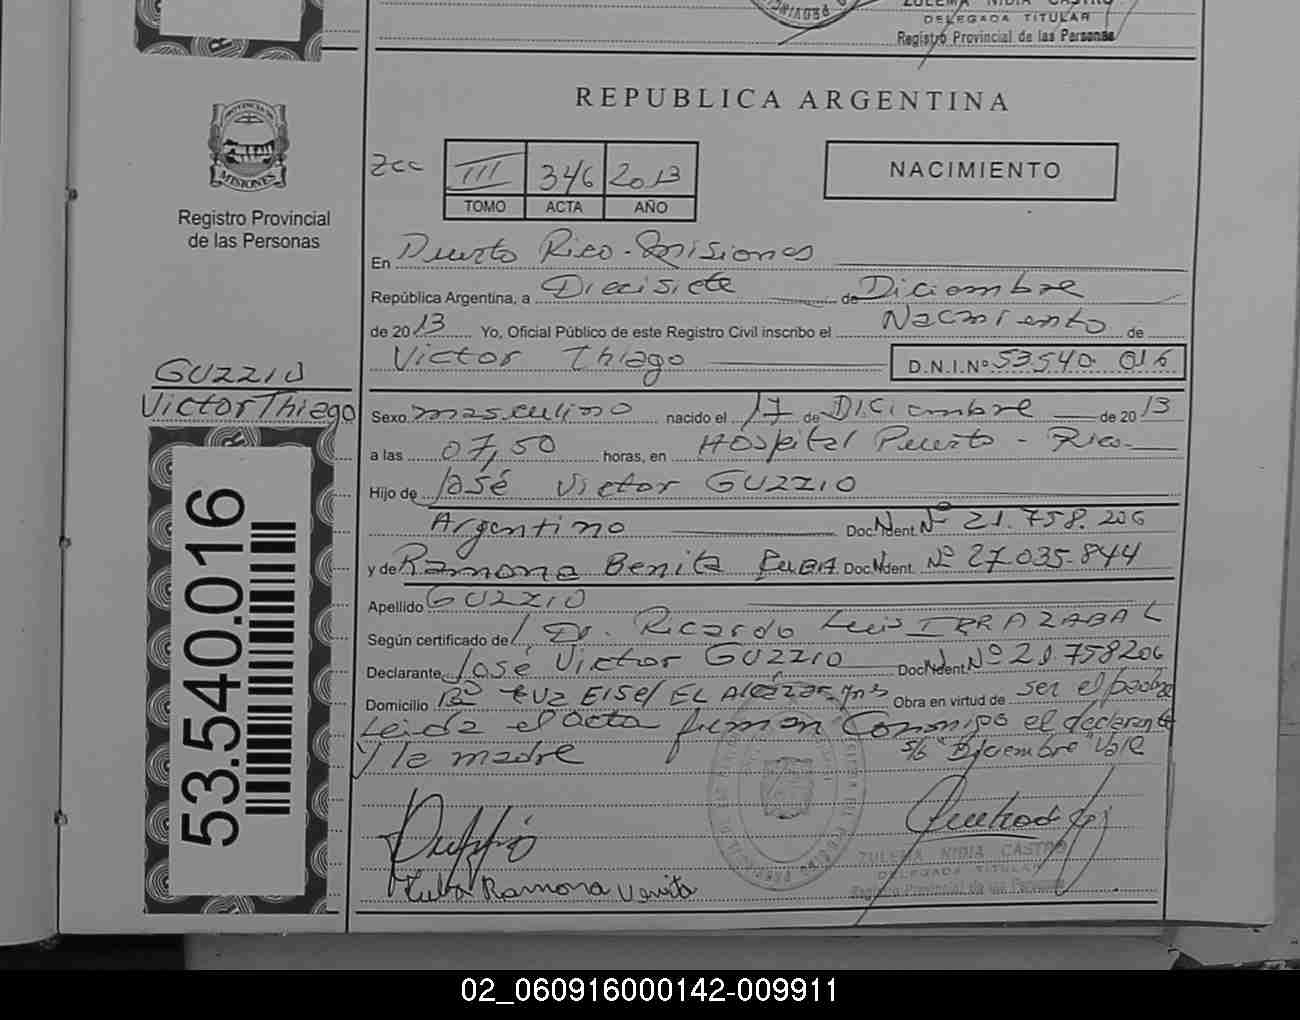 ZULEMA NIDIA CASTRO
DELEGADA TITULAR
Registro Provincial de las Personas
REPUBLICA ARGENTINA
PROVINCIA DE
MISIONES
Registro Provincial
de las Personas
zcc III 346 2013
TOMO ACTA AÑO
NACIMIENTO
En Puerto Rico - Misiones
República Argentina, a Diecisiete de Diciembre
de 2013 Yo, Oficial Público de este Registro Civil inscribo el Nacimiento de
Victor Thiago D.N.I.Nº 53540.016
GUZZIO
Victor Thiago
Sexo masculino nacido el 17 de Diciembre de 2013
a las 07,50 horas, en Hospital Puerto - Rico
Hijo de José Victor GUZZIO
Argentino Doc. Ident. Nº 21.758.206
y de Ramona Benita Doc. Ident. Nº 27.035.844
Apellido GUZZIO
Según certificado de Dr. Ricardo Luis IRRAZABAL
Declarante José Victor GUZZIO Doc. Ident. Nº 21.758206
Domicilio Bº EL Alcázar Mns Obra en virtud de ser el padre
Leida el acta firman conmigo el declarante
y la madre S/b "Diciembre" Vale
53.540.016
Ramona Venita
ZULEMA NIDIA CASTRO
DELEGADA TITULAR
Registro Provincial de las Personas
02_060916000142-009911